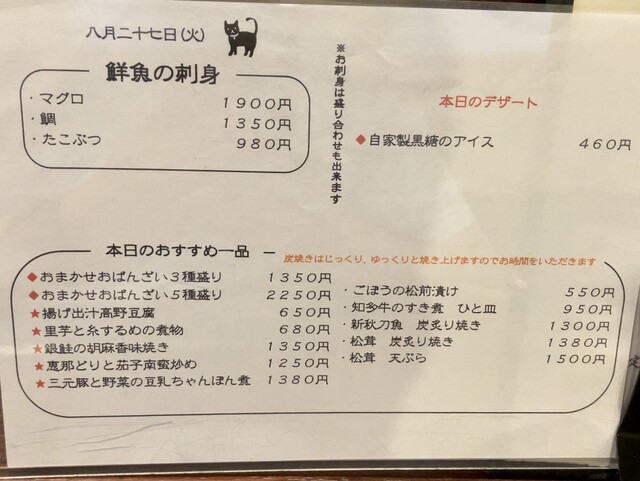 八月二十七日(火)
鮮魚の刺身
・マグロ 1900円
・鯛 1350円
・たこぶつ 980円
※お刺身は盛り合わせも出来ます
本日のデザート
◆自家製黒糖のアイス 460円
本日のおすすめ一品
炭焼きはじっくり、ゆっくりと焼き上げますのでお時間をいただきます
◆おまかせおばんざい3種盛り 1350円
◆おまかせおばんざい5種盛り 2250円
★揚げ出汁高野豆腐 650円
★里芋と糸するめの煮物 680円
★銀鮭の胡麻香味焼き 1350円
★恵那どりと茄子南蛮炒め 1250円
★三元豚と野菜の豆乳ちゃんぽん煮 1380円
・ごぼうの松前漬け 550円
・知多牛のすき煮 ひと皿 950円
・新秋刀魚 炭炙り焼き 1300円
・松茸 炭炙り焼き 1380円
・松茸 天ぷら 1500円